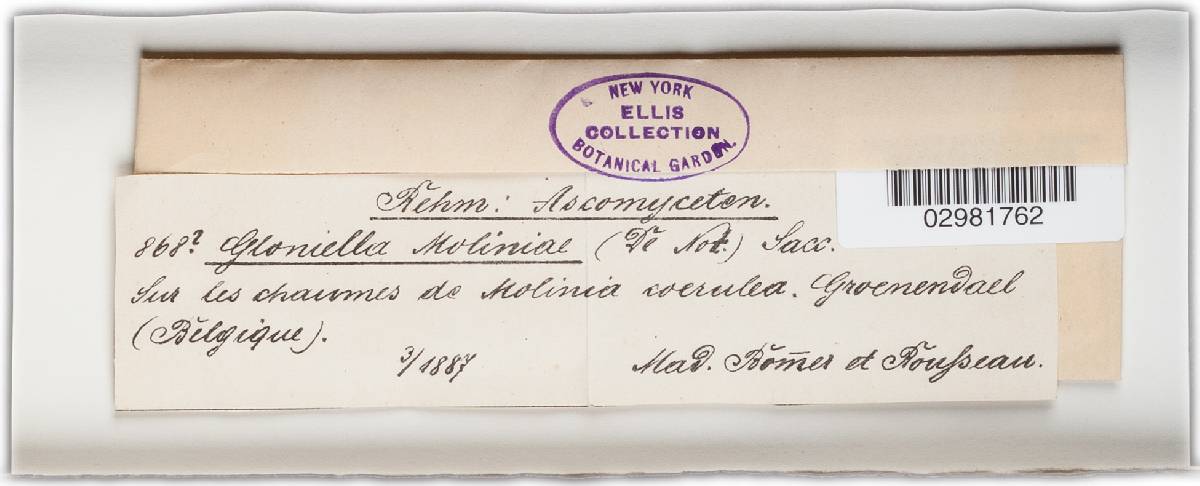 NEW YORK
ELLIS
COLLECTION
BOTANICAL GARDEN.
02981762
Rehm: Ascomyceten.
868? Gloniella Moliniae (De Not.) Sacc.
Sur les chaumes de Molinia coerulea. Groenendael
(Belgique).
3/1887 Mad. Bom̄er et Rousseau.